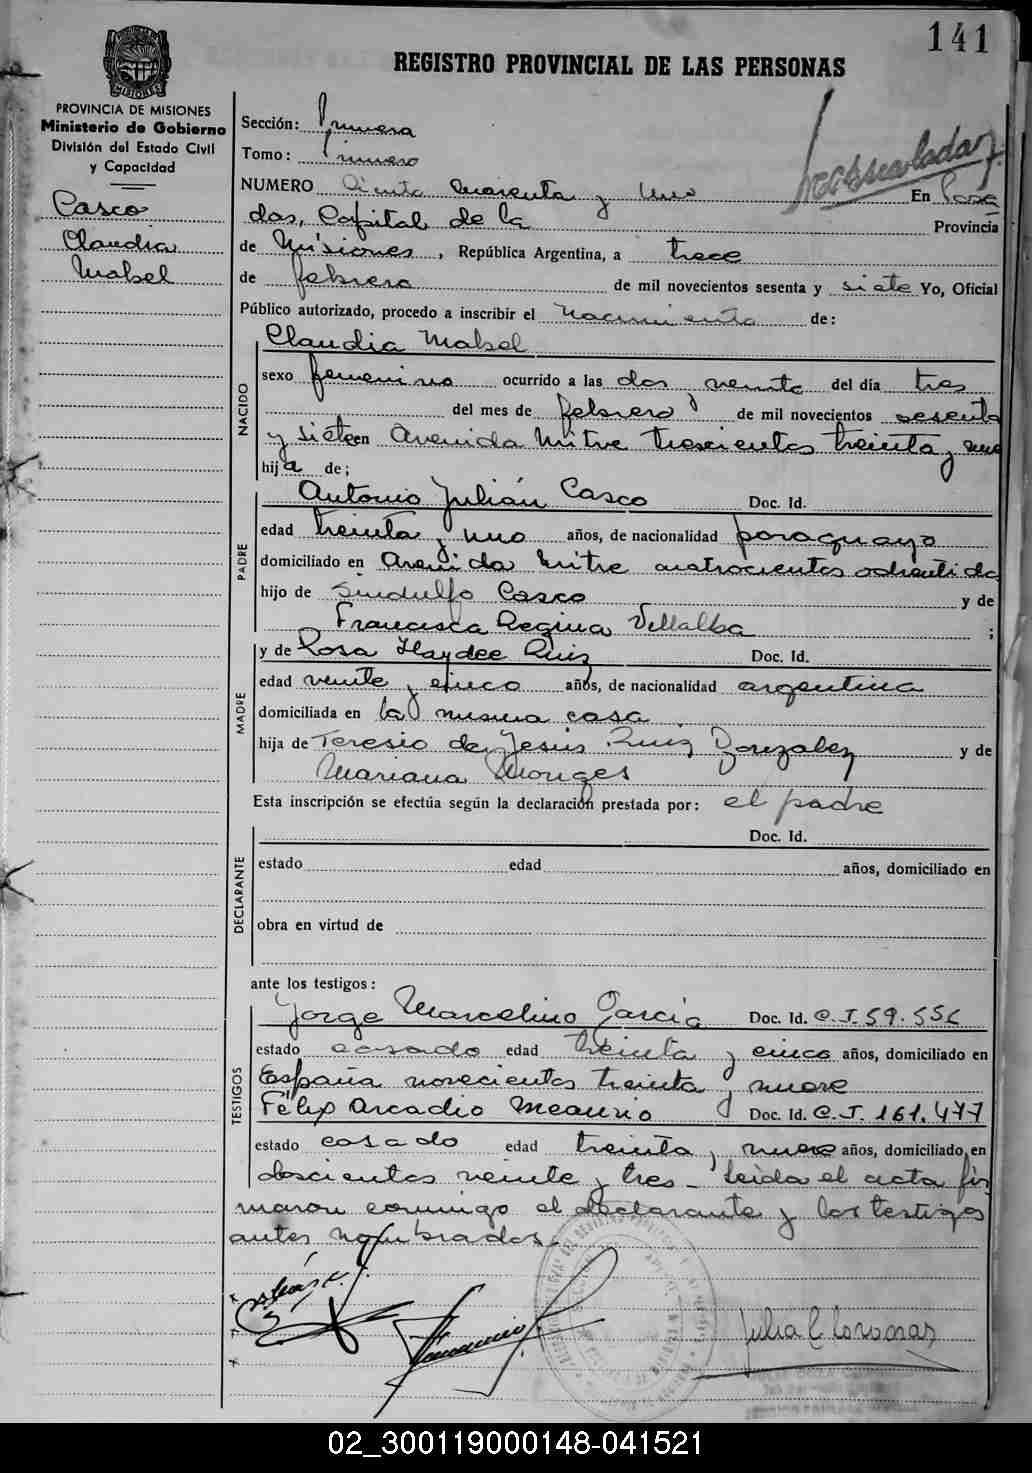 141
REGISTRO PROVINCIAL DE LAS PERSONAS
PROVINCIA DE MISIONES
Ministerio de Gobierno
División del Estado Civil
y Capacidad
Casco
Claudia
Mabel
Sección: Primera
Tomo: Primero
NUMERO Ciento cuarenta y uno En Posa
das, Capital de la Provincia
de Misiones, República Argentina, a trece
de febrero de mil novecientos sesenta y siete Yo, Oficial
Público autorizado, procedo a inscribir el nacimiento de:
NACIDO
Claudia Mabel
sexo femenino ocurrido a las dos veinte del día tres
del mes de febrero de mil novecientos sesenta
y siete en Avenida Mitre trescientos treinta y uno
hija de;
PADRE
Antonio Julián Casco Doc. Id.
edad treinta y uno años, de nacionalidad paraguayo
domiciliado en Avenida Mitre cuatrocientos
hijo de Sindulfo Casco y de
Francisca Regina Villalba ;
MADRE
y de Rosa Haydee Ruiz Doc. Id.
edad veinte y cinco años, de nacionalidad argentina
domiciliada en la misma casa
hija de Teresio de Jesús Ruiz Gonzalez y de
Mariana Monges
Esta inscripción se efectúa según la declaración prestada por: el padre
DECLARANTE
Doc. Id.
estado edad años, domiciliado en
obra en virtud de
ante los testigos:
TESTIGOS
Jorge Marcelino García Doc. Id. C.I. 59.556
estado casado edad treinta y cinco años, domiciliado en
España novecientos treinta y nueve
Félix Arcadio Meaurio Doc. Id. C.I. 161.477
estado casado edad treinta y nueve años, domiciliado en
doscientos veinte y tres - Leída el acta fir
maron conmigo el declarante y los testigos
antes nombrados.-
02_300119000148-041521